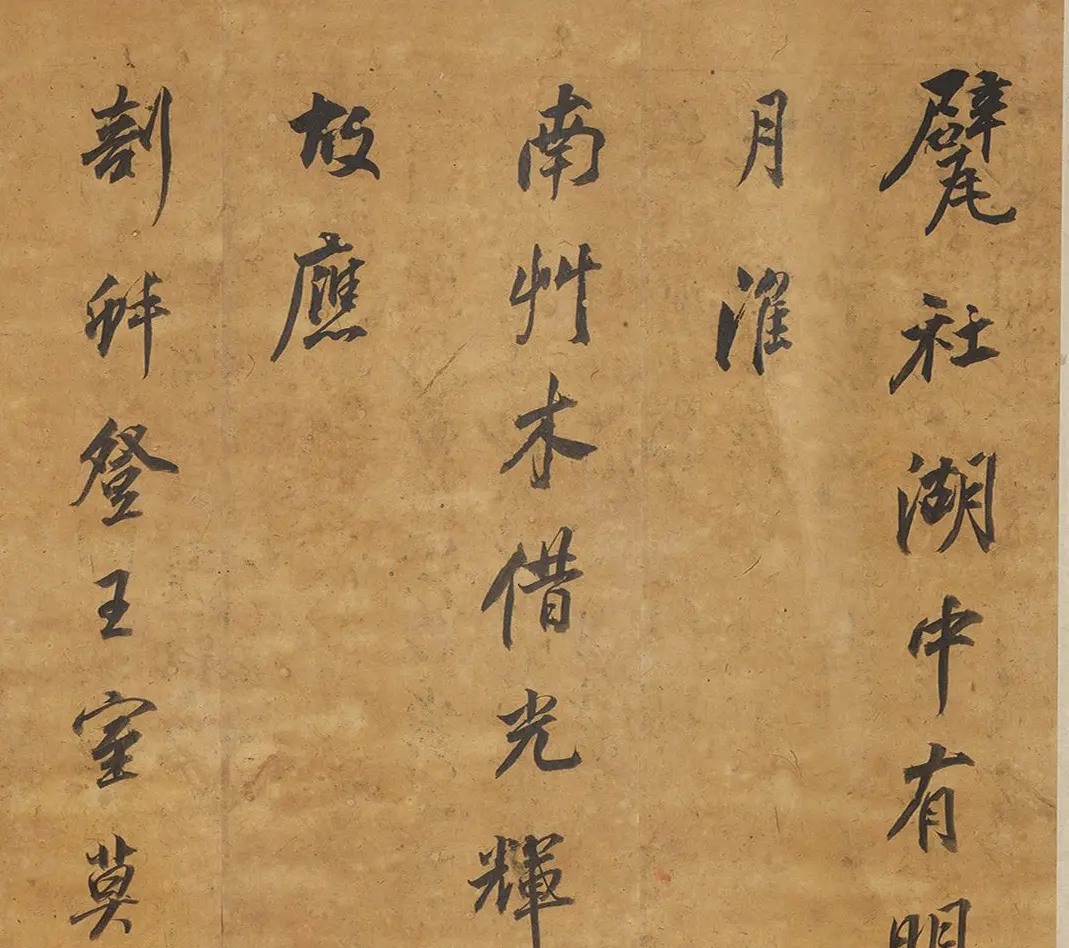 甓社湖中有明
月淮
南艸木借光輝
故應
剖蚌登王室莫